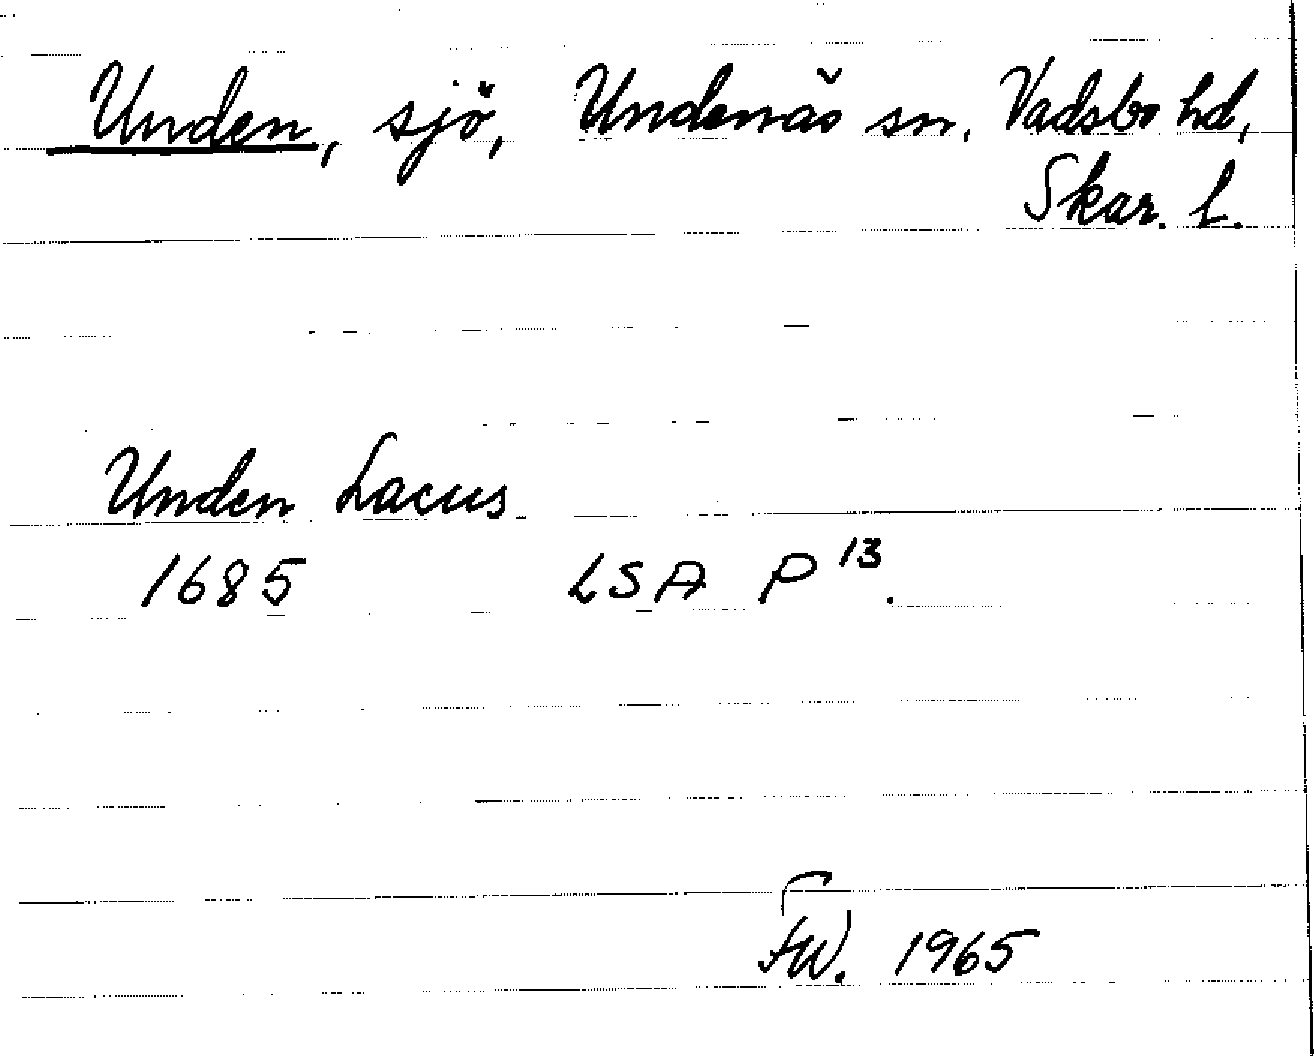 Unden, sjö, Undenäs sn, Vadsbo hd,
Skar. l.
Unden Lacus
1685 LSA P 13.
FW. 1965